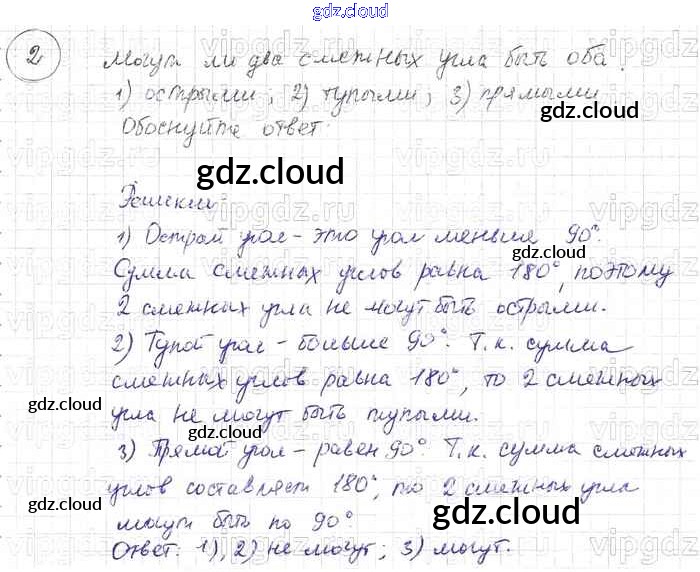 gdz.cloud
2
Могут ли два смежных угла быть оба:
1) острыми; 2) тупыми; 3) прямыми
Обоснуйте ответ:
gdz.cloud
gdz.cloud
Решение
1) Острый угол - это угол меньше 90°.
gdz.cloud
Сумма смежных углов равна 180°, поэтому
2 смежных угла не могут быть острыми.
2) Тупой угол - больше 90°. Т.к. сумма
смежных углов равна 180°, то 2 смежных
gdz.cloud
угла не могут быть тупыми.
gdz.cloud
3) Прямой угол - равен 90°. Т.к. сумма смежных
углов составляет 180°, то 2 смежных угла
gdz.cloud
gdz.cloud
могут быть по 90°.
Ответ: 1), 2) не могут; 3) могут.